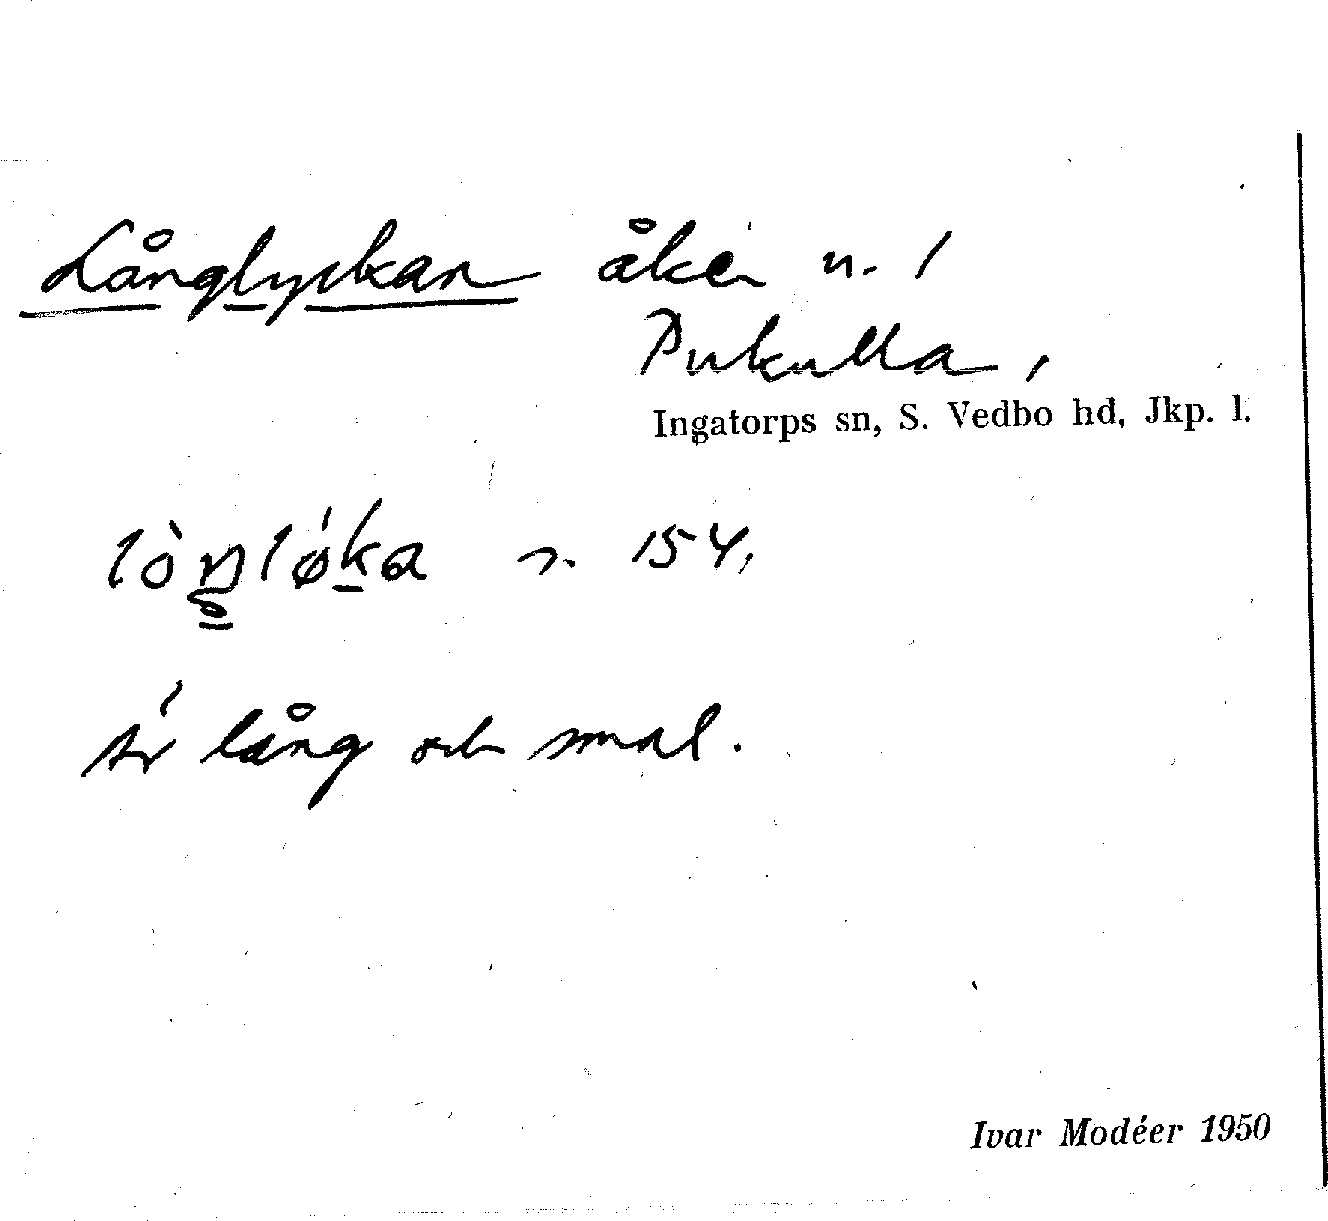 Långlyckan åker n. 1
Pukulla,
Ingatorps sn, S. Vedbo hd, Jkp. l.
lòŋløka n. 154.
Är lång och smal.
Ivar Modéer 1950